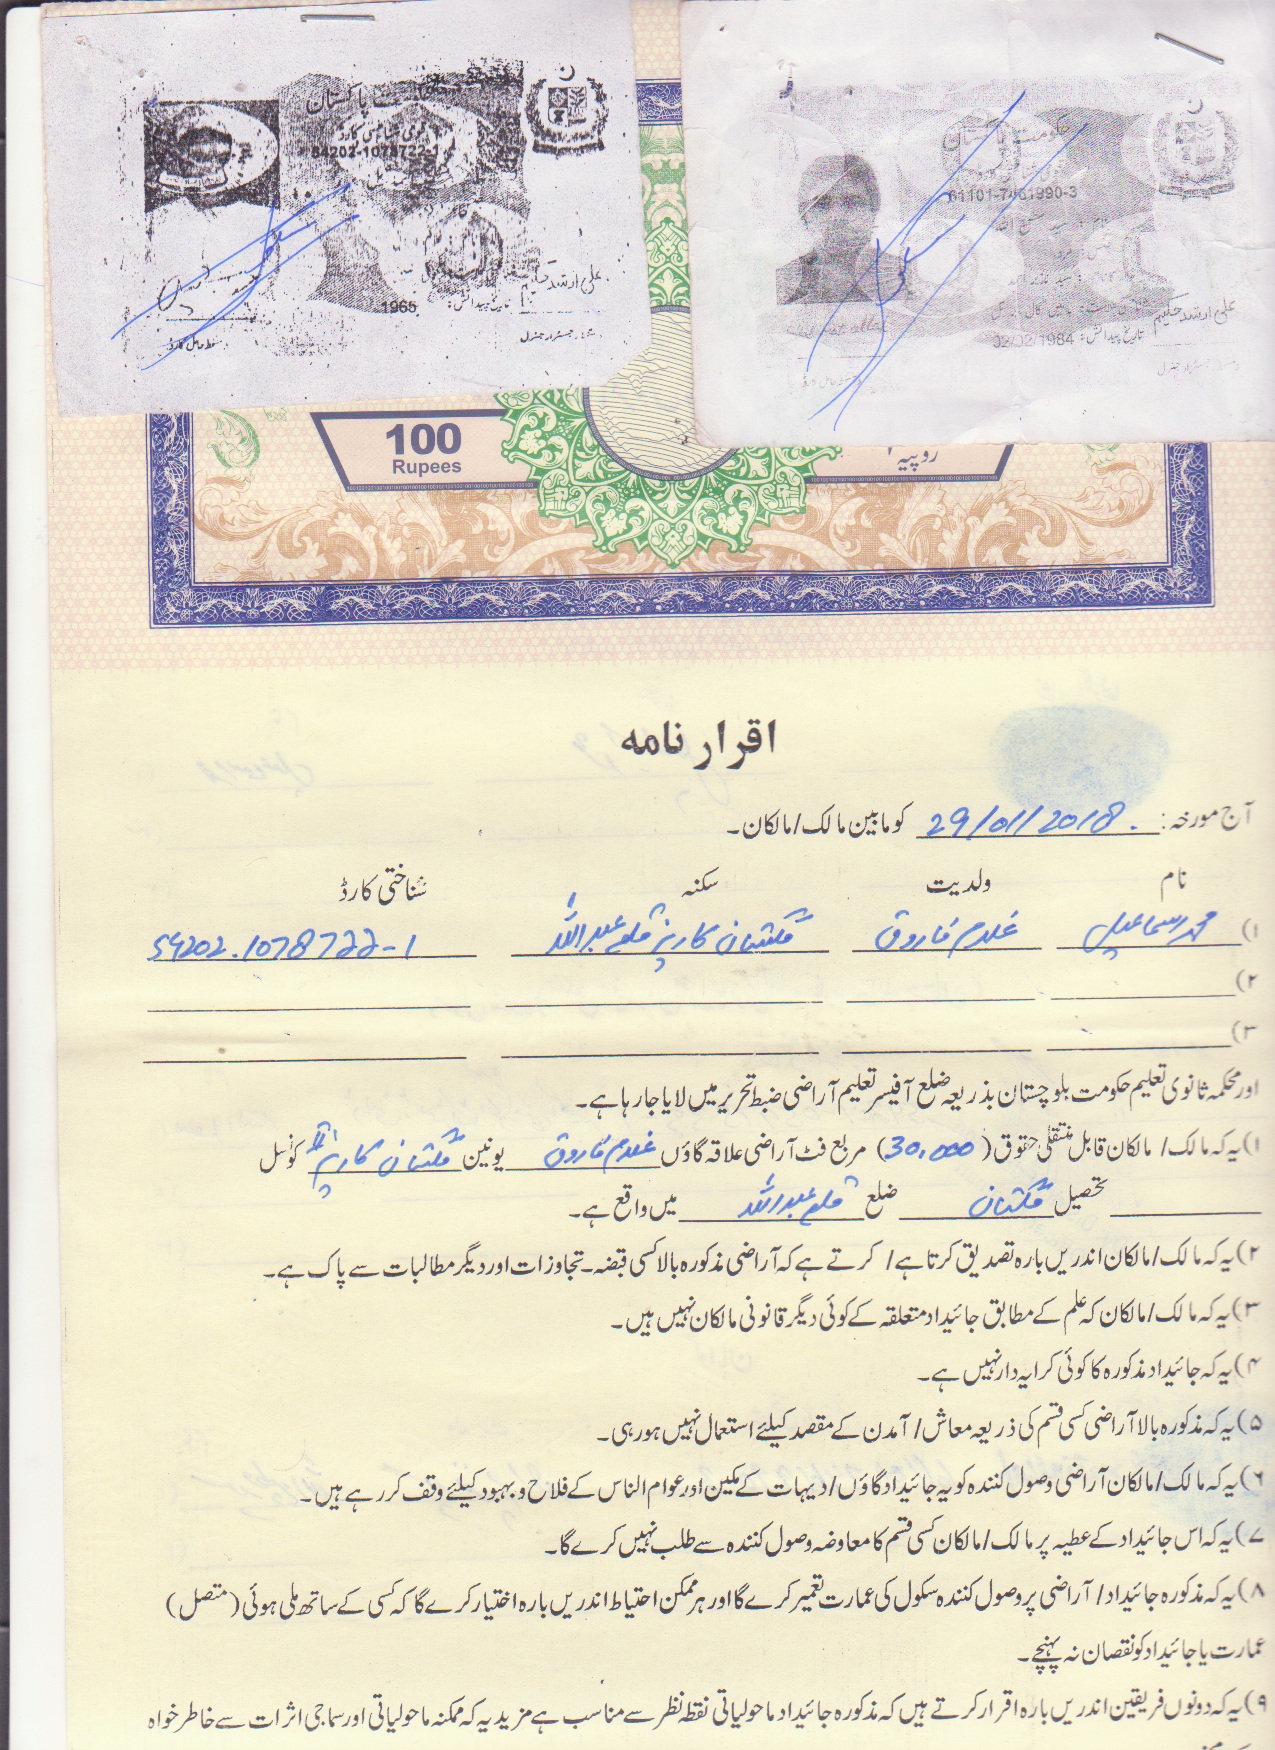 پاکستان
قومی شناختی کارڈ
84202-1078722-1
علی ارشد حکیم
تاریخ پیدائش: 1965
رجسٹرار جنرل
حکومت پاکستان
61101-7461990-3
علی ارشد حکیم
تاریخ پیدائش: 02/02/1984
رجسٹرار جنرل
100
Rupees
روپیہ
اقرار نامہ
آج مورخہ: 29/01/2018 کو مابین مالک/مالکان۔
نام ولدیت سکنہ شناختی کارڈ
۱) محمد اسماعیل غلام فاروق گلستان کاریز قلعہ عبداللہ 54202.1078722-1
۲)
۳)
اور محکمہ ثانوی تعلیم حکومت بلوچستان بذریعہ ضلع آفیسر تعلیم آراضی ضبط تحریر میں لایا جا رہا ہے۔
۱) یہ کہ مالک/ مالکان قابل منتقلی حقوق (30,000) مربع فٹ آراضی علاقہ گاؤں غلام فاروق یونین گلستان کاریز کونسل
تحصیل گلستان ضلع قلعہ عبداللہ میں واقع ہے۔
۲) یہ کہ مالک/مالکان اندریں بارہ تصدیق کرتا ہے/ کرتے ہے کہ آراضی مذکورہ بالا کسی قبضہ۔ تجاوزات اور دیگر مطالبات سے پاک ہے۔
۳) یہ کہ مالک/مالکان کہ علم کے مطابق جائیداد متعلقہ کے کوئی دیگر قانونی مالکان نہیں ہیں۔
۴) یہ کہ جائیداد مذکورہ کا کوئی کرایہ دار نہیں ہے۔
۵) یہ کہ مذکورہ بالا آراضی کسی قسم کی ذریعہ معاش/ آمدن کے مقصد کیلئے استعمال نہیں ہو رہی۔
۶) یہ کہ مالک/مالکان آراضی وصول کنندہ کو یہ جائیداد گاؤں/ دیہات کے مکین اور عوام الناس کے فلاح و بہبود کیلئے وقف کر رہے ہیں۔
۷) یہ کہ اس جائیداد کے عطیہ پر مالک/مالکان کسی قسم کا معاوضہ وصول کنندہ سے طلب نہیں کرے گا۔
۸) یہ کہ مذکورہ جائیداد/ آراضی پر وصول کنندہ سکول کی عمارت تعمیر کرے گا اور ہر ممکن احتیاط اندریں بارہ اختیار کرے گا کہ کسی کے ساتھ ملی ہوئی (متصل)
عمارت یا جائیداد کو نقصان نہ پہنچے۔
۹) یہ کہ دونوں فریقین اندریں بارہ اقرار کرتے ہیں کہ مذکورہ جائیداد ماحولیاتی نقطہ نظر سے مناسب ہے مزید یہ کہ ممکنہ ماحولیاتی اور سماجی اثرات سے خاطر خواہ